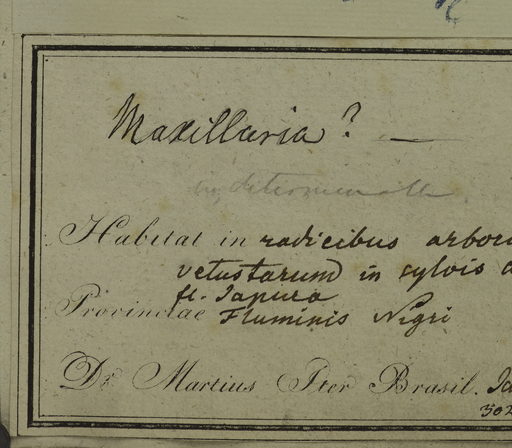 Maxillaria? —
indeterminabilis
Habitat in radicibus arbor
vetustarum in sylvis
fl. Japura
Provinciae Fluminis Nigri
Dr. Martius Iter Brasil. Ja
302